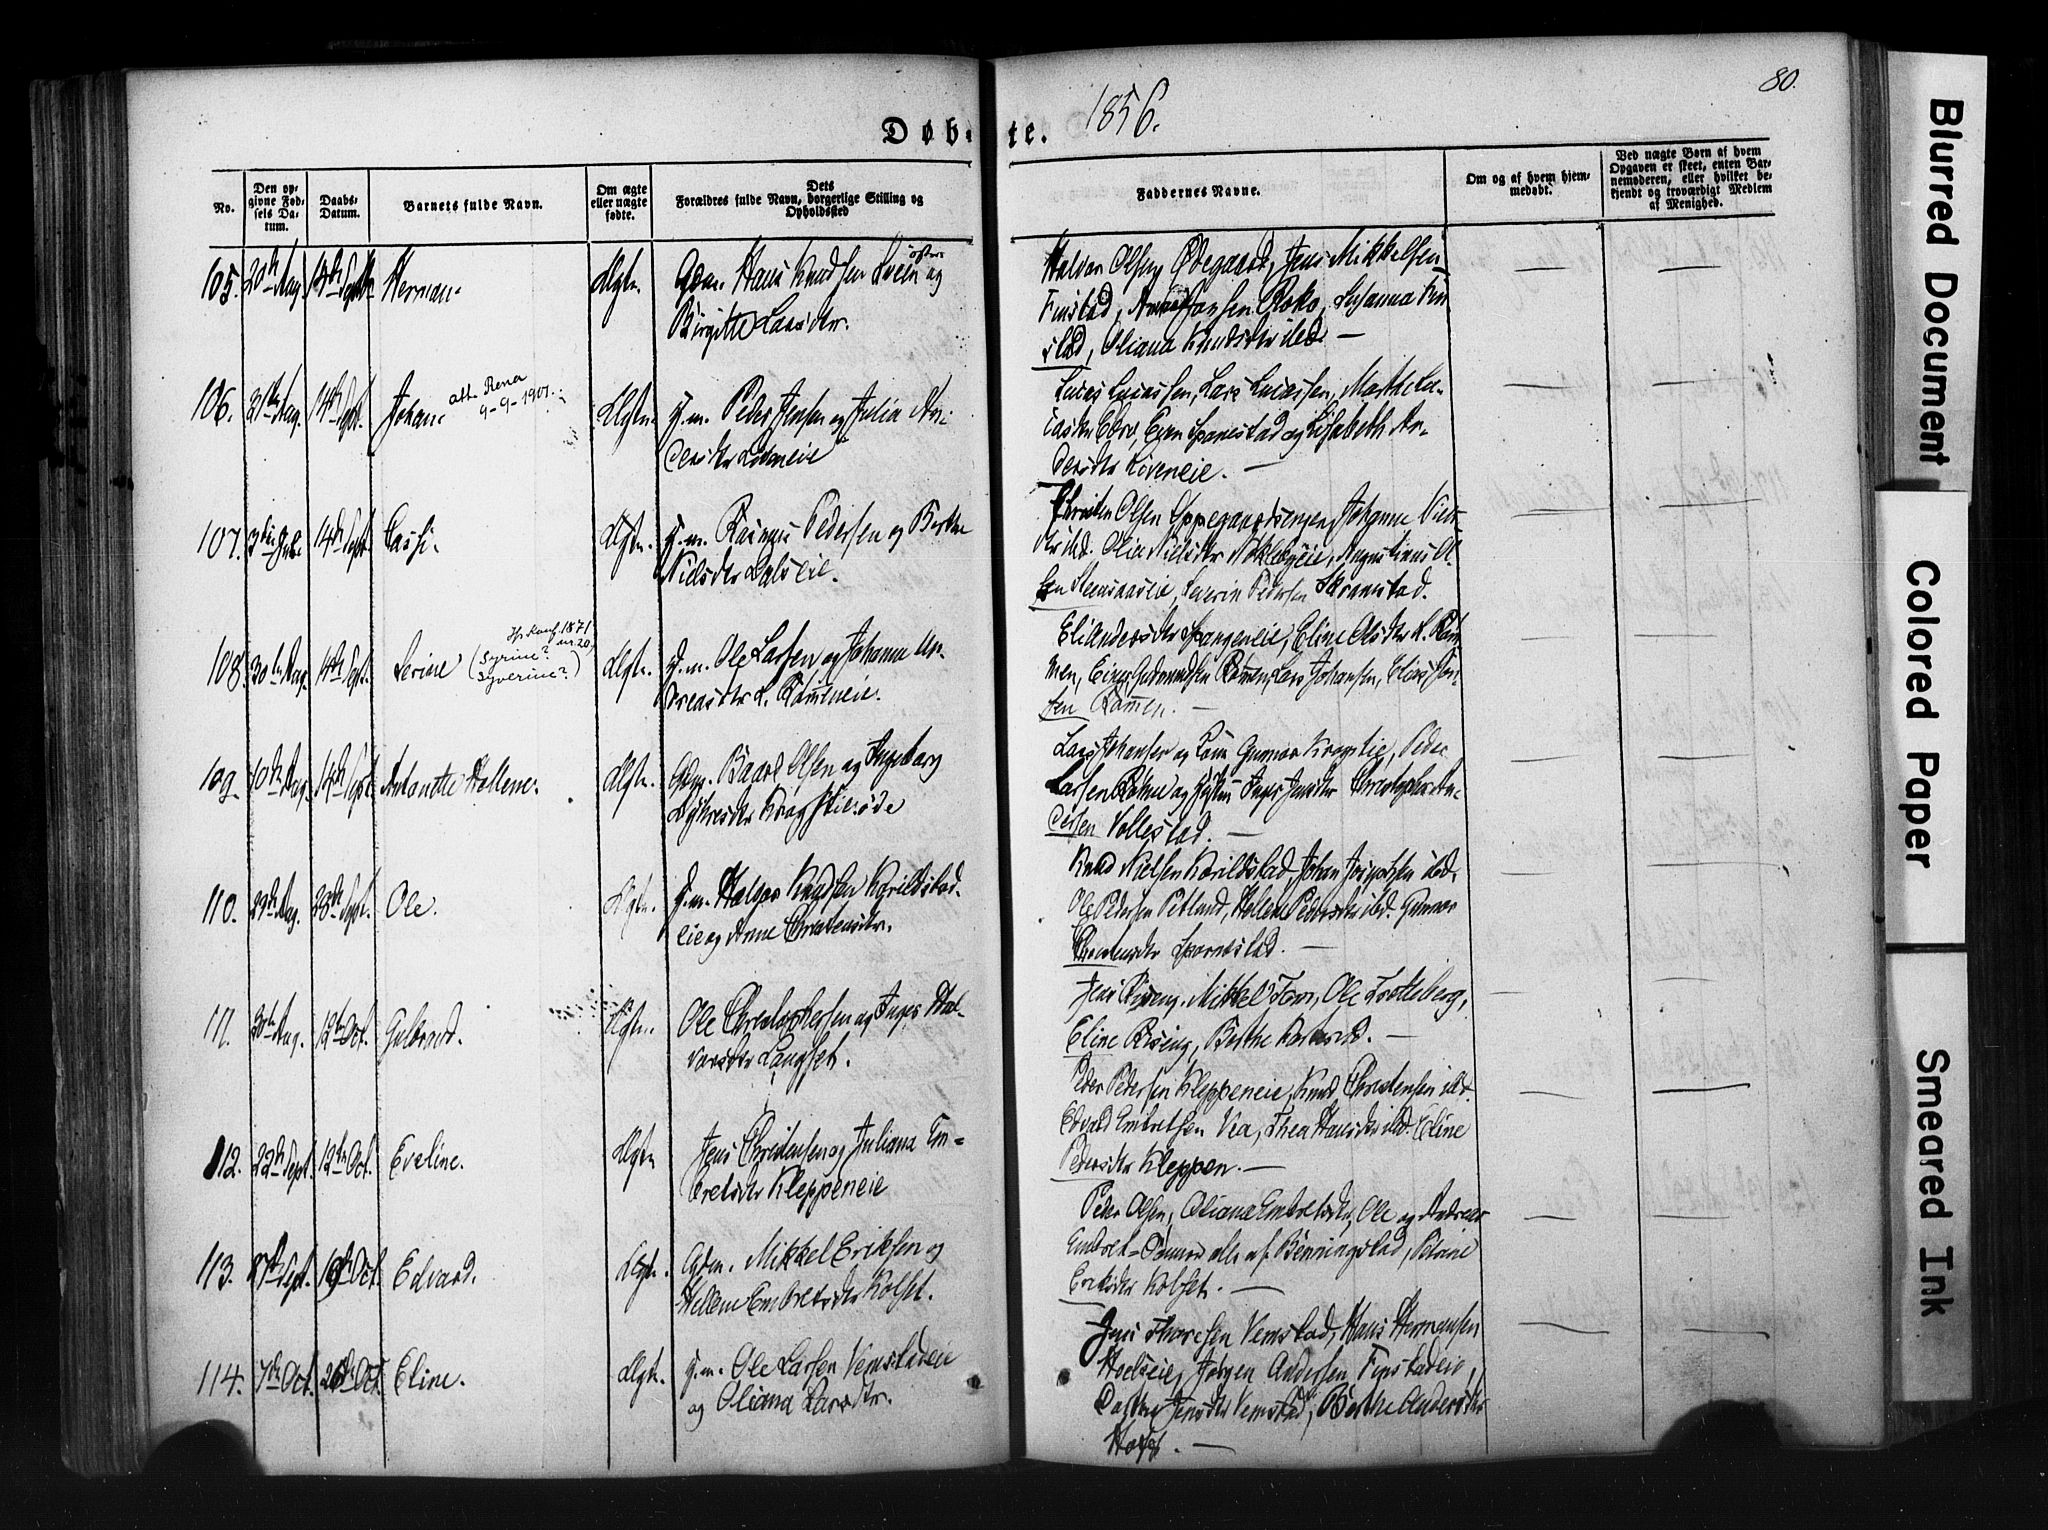 80.
1856.
Døbte.
No.
Den opgivne Fødsels Datum.
Daabs-Datum.
Barnets fulde Navn.
Om ægte eller uægte fødte.
Dets Forældres fulde Navn, borgerlige Stilling og Opholdssted
Faddernes Navne.
Om og af hvem hjemmedøbt.
Ved uægte Børn af hvem Opgaven er skeet, enten Barnemoderen, eller hvilket bekjendt og troværdigt Medlem af Menighed.
105. 20de Aug. 14de Sept. Herman. Ægte. Gdm. Hans Knudsen Sveen og
Birgitte Larsdtr.
Halvor Olsen Ødegaard, Jens Mikkelsen
Finstad, Jonsen Roko, Susanna Fin
stad, Oliana Knudsdtr ibd. —
106. 21de Aug. 14de Sept. Johan. att. Rena 9-9-1901. Ægte. G.m. Peder Jensen og Julia An-
dersdtr
Lucas Lucassen, Lars Lucassen, Marthe Lu-
casdtr Spanestad og Lisabeth An-
dersdtr —
107. 3die Juli 14de Sept. Ægte. G.m. Rasmus Pedersen og Berthe
Nielsdtr
Christen Olsen Johanne Niels-
dtr ibd. Olia Nielsdtr Augustinus Ol-
sen Severin Pedersen Skramstad.
108. 30te Aug. 14de Sept. Serine (Syrine? Syverine?) Jfr. Konf. 1871 nr. 20. Ægte. G.m. Ole Larsen og Johanne An-
dreasdtr L. Rømmeneie.
Eli Andersdtr Spangeneie, Eline Olsdtr L. Røm-
men, Einer Gudmundsen Rømmen, Lars Johansen, Elias Jon-
sen Rømmen. —
109. 10de Aug. 14de Sept. Antonette Hellene. Ægte. Gdm. Baard Olsen og Ingeborg
Kragstie
Lars Johansen og Gunnar Kragstie, Peder
Larsen og Inger Jensdtr Christopher An-
dersen Vollestad. —
110. 29de Aug. 28de Sept. Ole. Ægte. G.m. Halvor Knudsen Korildstad-
eie og Anne Christensdtr.
Knud Nielsen Korildstad, Johan ibd.
Ole Pedersen Petlund, Hellene Pedersdtr ibd. Gunnar
Christensdtr Spanestad. —
111. 30te Aug. 12te Oct. Gulbrand. Ægte. Ole Christophersen og Inger Hal-
vorsdtr Langset.
Jens Riseng, Mikkel Ole Trotteberg,
Eline Riseng, Berthe —
112. 22de Sept. 12te Oct. Eveline. Ægte. Jens Christensen og Juliana Em-
bretsdtr Kleppeneie
Peder Pedersen Kleppeneie, Knud Christensen ibd.
Edvard Embretsen Vea, Thea Hansdtr ibd. Eline
Pedersdtr Kleppen. —
113. 27de Sept. 19de Oct. Edvard. Ægte. Gdm. Mikkel Eriksen og
Hellene Embretsdtr Kolset.
Peder Olsen, Oliana Embretsdtr, Ole og Andreas
Embret-Sønner alle af Benningstad, Petrine
Eriksdtr Kolset. —
114. 7de Oct. 26de Oct. Eline. Ægte. G.m. Ole Larsen Vemstadeie
og Oliana Larsdtr.
Jens Thoresen Vemstad, Hans Hermansen
Hoelseie, Jørgen Andersen Finstadeie,
Jensdtr Vemstad, Berthe Andersdtr
—
Blurred Document
Colored Paper
Smeared Ink